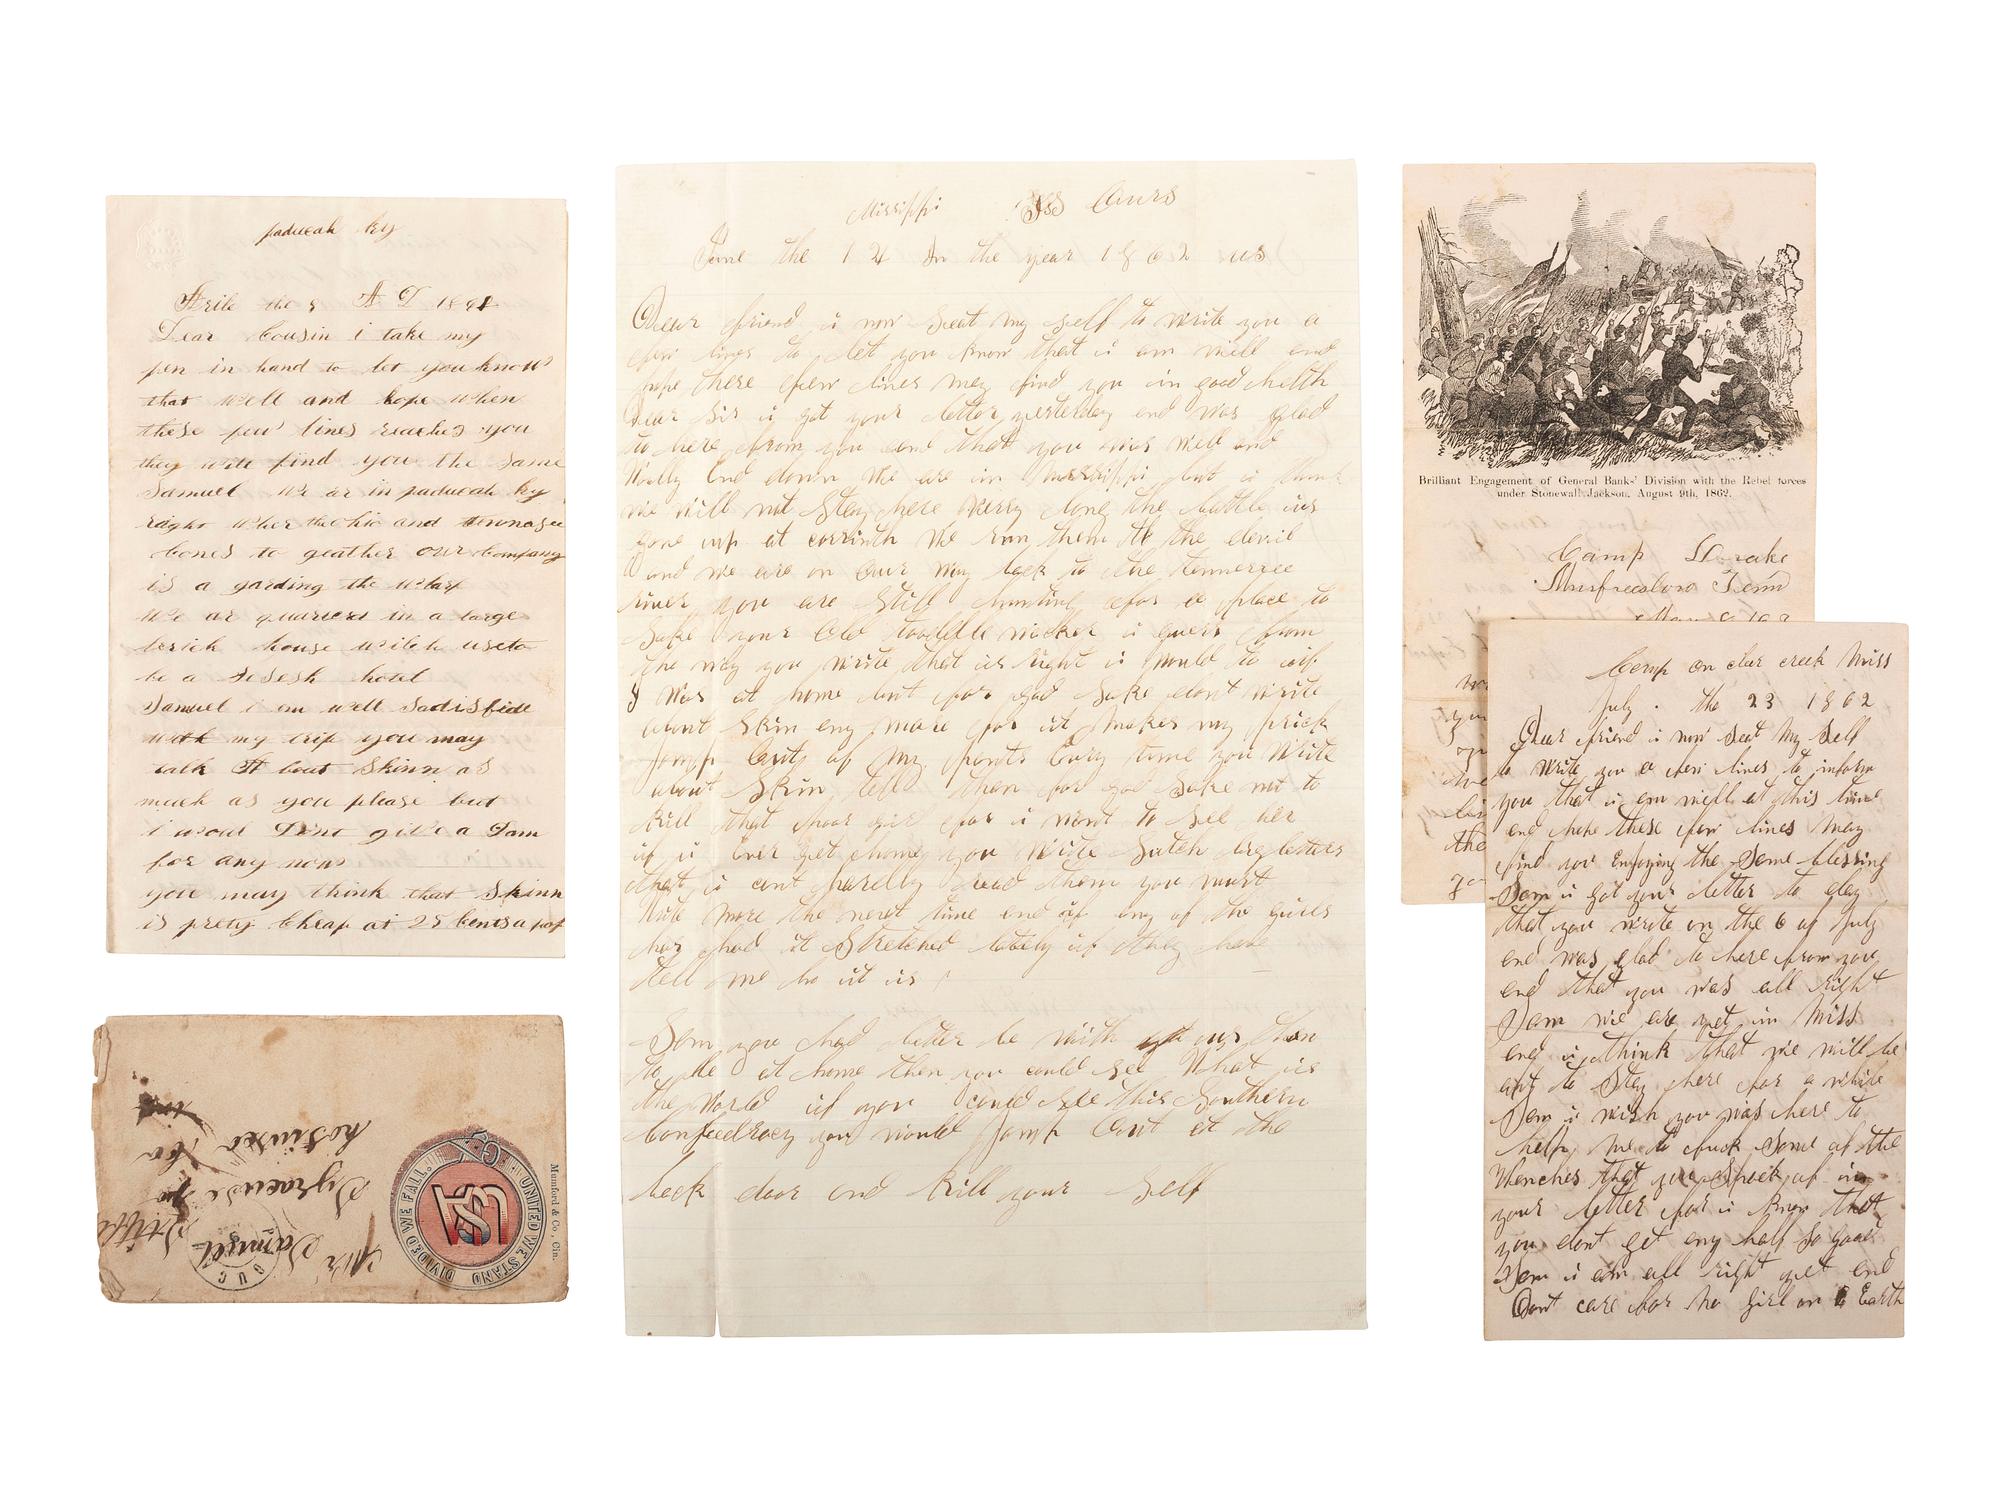 paducah ky
Aprile the 9 A D 1892
Dear Cousin i take my
pen in hand to let you know
that well and hope when
these few lines reaches you
they will find you the same
Samuel we ar in paducah ky
right wher the ohio and tennasee
Comes to geather our Company
is a garding the wharf
We ar quarterd in a large
brick house which useto
be a Sesesh hotel
Samuel i am well Sadisfide
with my trip you may
talk A bout Skinn as
much as you please but
i woud Dont give a Dam
for any now
you may think that Skinn
is prety Cheap at 25 Cents a pop
Mumford & Co., Cin.
UNITED WE STAND DIVIDED WE FALL.
USA
Mr Samuel
Syracuse Po
kosiusco Co
AUG
Missippi
June the 12 In the year 1862 us
Dear friend i now Seat my self to write you a
few lines to let you know that i am well and
hope these few lines may find you in good helth
Dear Sir i got your letter yesterday and was glad
to here from you and that you was well and
We are in but i think
we will not Stay here verry long the battle is
gone up at corrinth We run them to the devil
and we are on Our way back to the tennessee
river you are Still hunting for a place to
Soke your Old i guess from
the way you write that is right i would to if
I was at home but for god sake dont write
about Skin eny more for it makes my prick
Jomp Out of my pants Evry time you Write
about Skin tell them for god Sake not to
kill that poor for i want to see her
if i Ever get home you Write Sutch big letters
that i cant hardly read them you must
Write more the next time and if eny of the girls
has had it Stretched lately if they have
tell me ho it is
Sam you had better be with us than
to be at home then you could see What is
the World if you could see this Southern
Confeedracy you would Jomp Out at the
back door and kill your Self
Brilliant Engagement of General Banks' Division with the Rebel forces
under Stonewall Jackson, August 9th, 1862.
Camp Drake
Murfreesboro Tenn
Camp on clar creek Miss
July . the 23 1862
Dear friend i now Seat My Self
to Write you a few lines to inform
you that i am well at this time
and hope these few lines May
find you Enjoying the Same blessing
Sam i got your letter to day
that you wrote on the 6 of July
and was glad to here from you
and that you was all right
Sam we are yet in Miss
and i think that we will be
apt to Stay here for a while
Sam i wish you was here to
help me to fuck Some of the
Wenches that you Speek of in
your letter for i know that
you dont get eny half so good
Sam i am all right yet and
Dont care for no girl on Earth